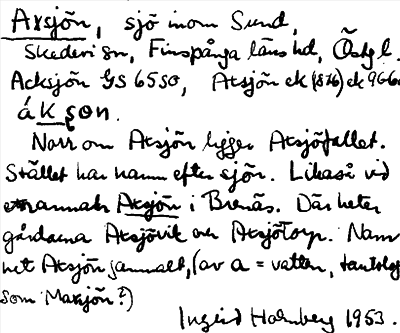 Axsjön, sjö inom Sund,
Skedevi sn, Finspånga läns hd, Östgl.
Acksjön GS 65SO, Axsjön ek (1876) ek 966
á k ʃ ö n.
Norr om Axsjön ligger Axsjöfallet.
Stället har namn efter sjön. Likaså vid
annat Axsjön i Brenäs. Där heter
gårdarna Axsjövik och Axsjötorp. Nam
net Axsjön gammalt, (av a = vatten, tautolog
som Marsjön?)
Ingrid Holmberg 1953.